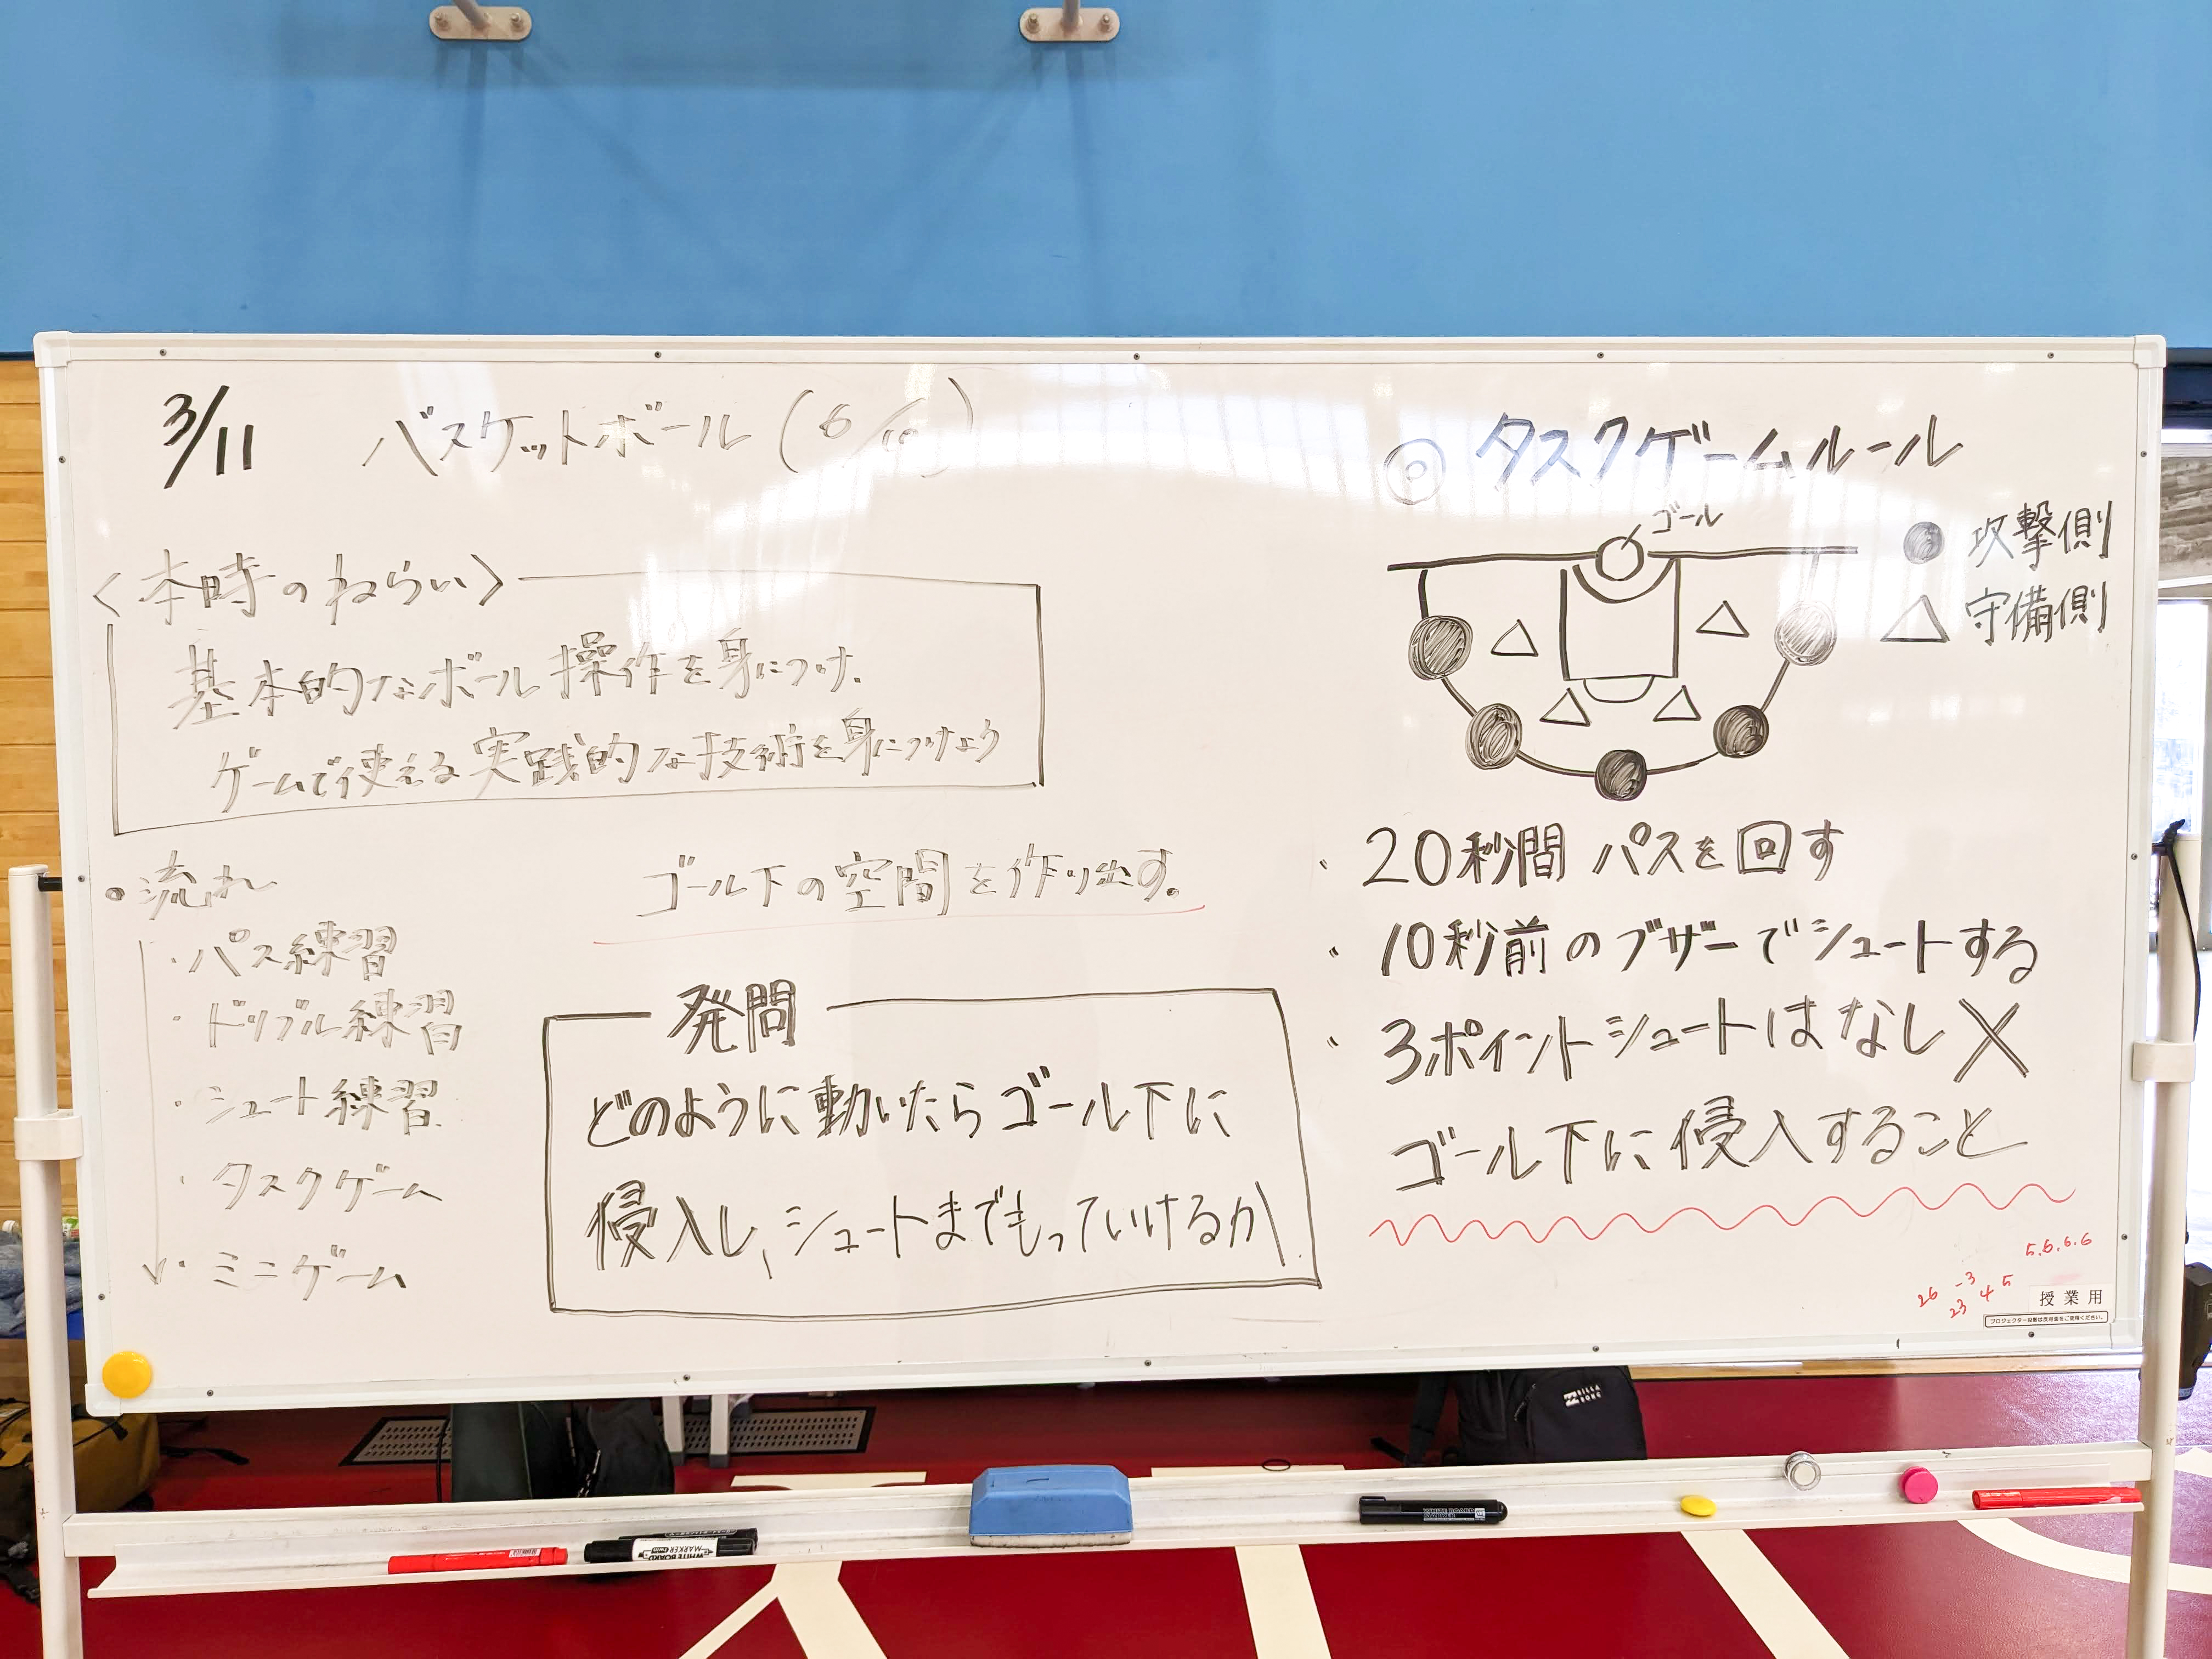 3/11 バスケットボール (6/10)
〈本時のねらい〉
基本的なボール操作を身につけ、
ゲームで使える実践的な技術を身につけよう
・流れ
・パス練習
・ドリブル練習
・シュート練習
・タスクゲーム
・ミニゲーム
ゴール下の空間を作り出す。
発問
どのように動いたらゴール下に
侵入し、シュートまでもっていけるか
◎ タスクゲームルール
ゴール
● 攻撃側
△ 守備側
・20秒間 パスを回す
・10秒前のブザーでシュートする
・3ポイントシュートはなし X
ゴール下に侵入すること
5.6.6.6
26 -3 23 4 5
授業用
プロジェクター投影は反対面をご使用ください。
WHITE BOARD
MARKER
WHITE BOARD
BILLABONG